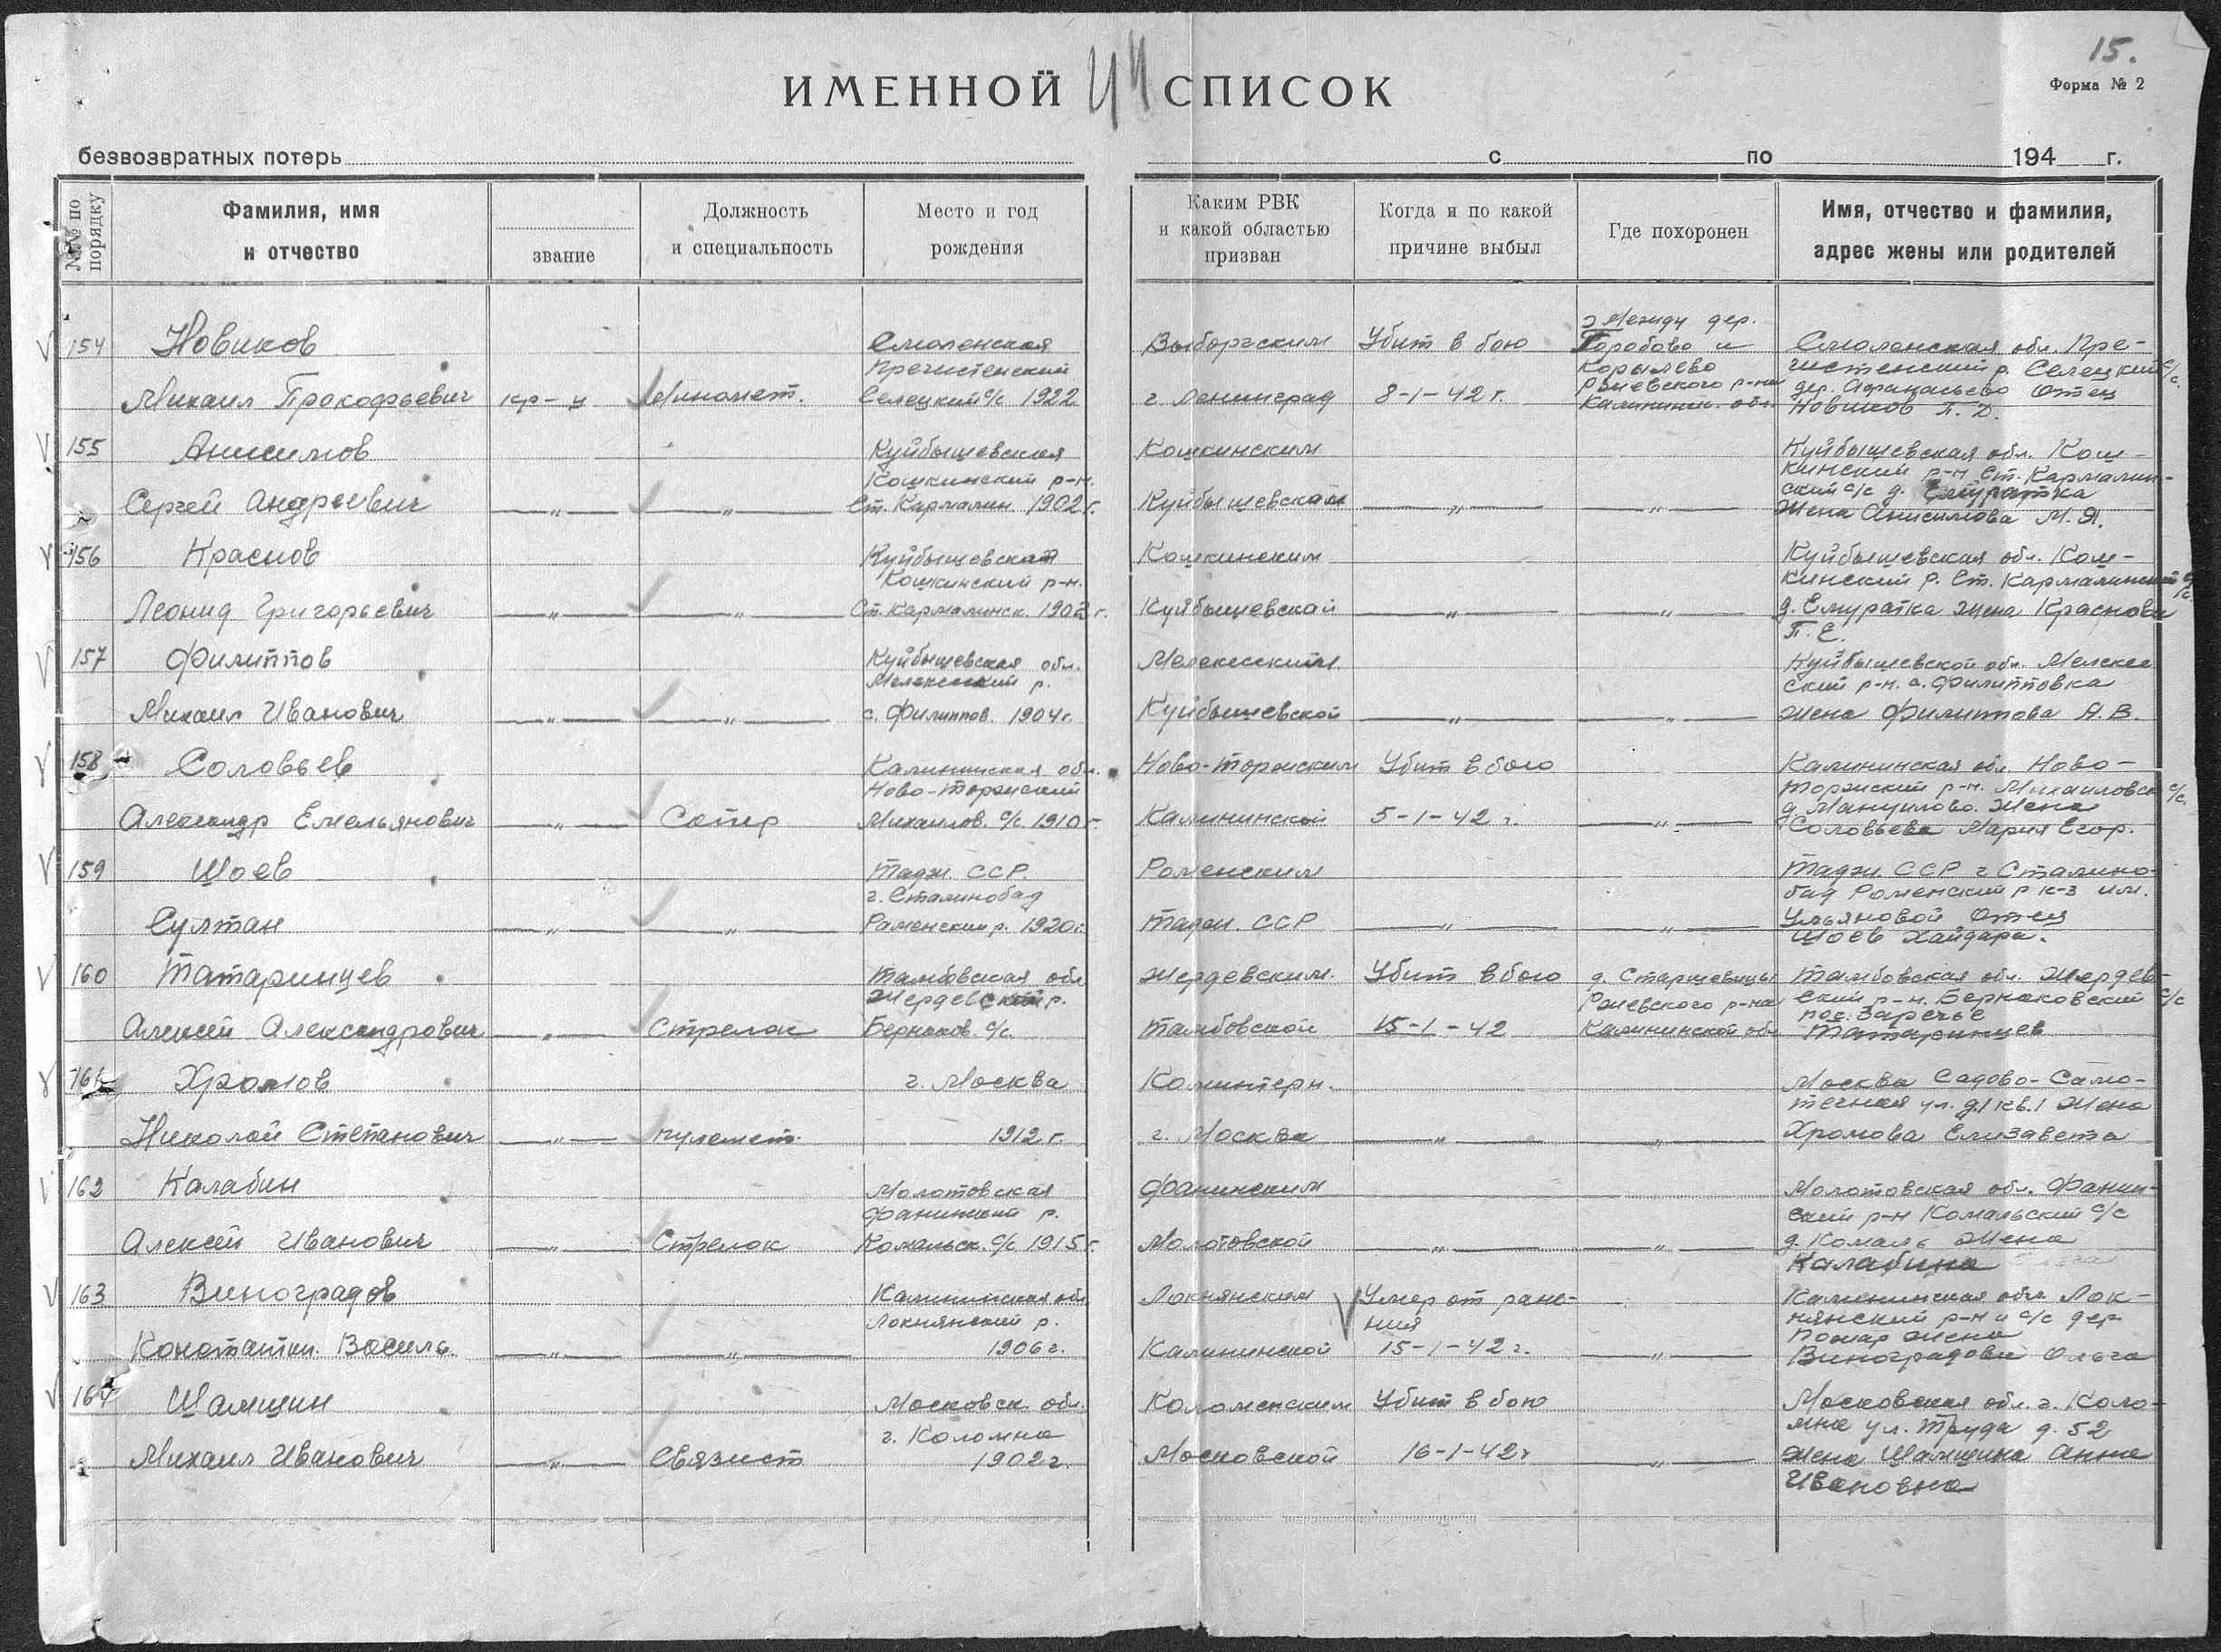 15.
Форма № 2
ИМЕННОЙ СПИСОК
безвозвратных потерь с по 194 г.
№№ по порядку
Фамилия, имя и отчество
звание
Должность и специальность
Место и год рождения
Каким РВК и какой областью призван
Когда и по какой причине выбыл
Где похоронен
Имя, отчество и фамилия, адрес жены или родителей
154 Новиков
Михаил Прокофьевич
кр-ц
Миномет.
Смоленская
Пречистенский
Селецкий с/с 1922
Выборгским
г. Ленинград
Убит в бою
8-1-42 г.
Между дер.
Горобово и
Корылево
Ржевского р-на
Калининск. обл.
Смоленская обл. Пре-
чистенский р. Селецкий с/с.
дер. Афанасьево Отец
Новиков П. Д.
155 Анисимов
Сергей Андреевич
—"— —"—
Куйбышевская
Кошкинский р-н.
Ст. Кармалин. 1902 г.
Кошкинским
Куйбышевской
—"— —"—
Куйбышевская обл. Кош-
кинский р-н Ст. Кармалин-
ский с/с д.
Жена Анисимова М. Я.
156 Краснов
Леонид Григорьевич
—"— —"—
Куйбышевская
Кошкинский р-н.
Ст. Кармалинск. 1902 г.
Кошкинским
Куйбышевской
—"— —"—
Куйбышевская обл. Кош-
кинский р. Ст. Кармалинский с/с.
д. Емуратка жена Краснова
П. Е.
157 Филиппов
Михаил Иванович
—"— —"—
Куйбышевская обл.
Мелекесский р.
с. Филиппов. 1904 г.
Мелекесским
Куйбышевской
—"— —"—
Куйбышевской обл. Мелекес
ский р-н. с. Филипповка
жена Филиппова А. В.
158 Соловьев
Александр Емельянович
—"— Сапер
Калининская обл.
Ново-Торжский
Михайлов. с/с. 1910 г.
Ново-Торжским
Калининской
Убит в бою
5-1-42 г.
—"—
Калининская обл. Ново-
Торжский р-н. Михайловск с/с.
д. Мануилово. Жена
Соловьева Мария Егор.
159 Шоев
Султан
—"— —"—
Тадж. ССР.
г. Сталинобад
Раменский р. 1920 г.
Роменским
Тадж. ССР
—"— —"—
Тадж. ССР г Сталино-
бад Роменский р к-з им.
Ульяновой Отец
Шоев Хайдара.
160 Татаринцев
Алексей Александрович
—"— Стрелок
Тамбовская обл
Жердевский р.
Бернаков. с/с.
Жердевским.
Тамбовской
Убит в бою
15-1-42
д. Старшевицы
Ржевского р-на
Калининской обл
Тамбовская обл. Жердев-
ский р-н. Бернаковский с/с
пос. Заречье
Татаринцев
161 Хромов
Николай Степанович
—"— пулемет.
г. Москва
1912 г.
Коминтерн.
г. Москва
—"— —"—
Москва Садово-Само-
течная ул. д.1 кв.1 Жена
Хромова Елизавета
162 Калабин
Алексей Иванович
—"— Стрелок
Молотовская
Фанинский р.
Комальск. с/с 1915 г.
Фанинским
Молотовской
—"— —"—
Молотовская обл. Фанин-
ский р-н Комальский с/с
д. Комаль Жена
Калабина
163 Виноградов
Констатин. Василь.
—"— —"—
Калининская обл
Локнянский р.
1906 г.
Локнянским
Калининской
Умер от ране-
ния
15-1-42 г.
—"—
Калининская обл Лок-
нянский р-н и с/с дер
Пожар жена
Виноградова Ольга
164 Шамшин
Михаил Иванович
—"— Связист
Московск. обл.
г. Коломна
1902 г.
Коломенским
Московской
Убит в бою
16-1-42 г
—"—
Московская обл. г. Коло-
мна ул. Труда д. 52
жена Шамшина Анна
Ивановна